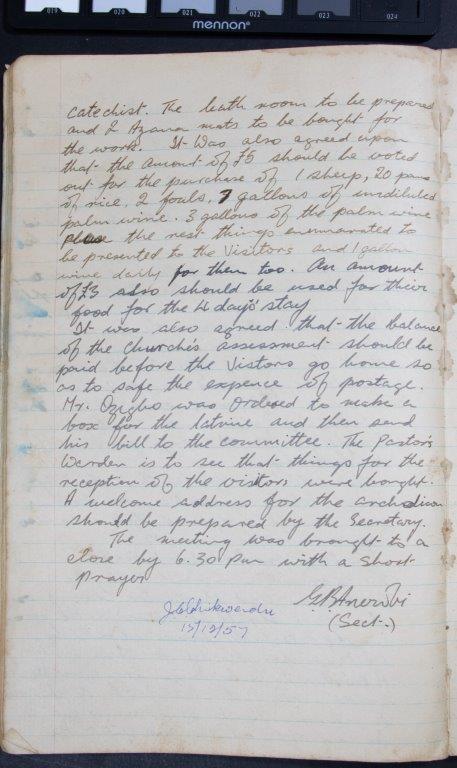 019 020 021 022 023 024
mennon®
catechist. The bath room to be prepared
and 2 Azara mats to be bought for
the work. It was also agreed upon
that the amount of £5 should be voted
out for the purchase of 1 sheep, 20 pans
of rice, 2 fouls, 7 gallons of undiluted
palm wine. 3 gallons of the palm wine
the rest things enumarated to
be presented to the Visitors and 1 gallon
wine daily for them too. An amount
of £3 also should be used for their
food for the 4 days' stay
It was also agreed that the balance
of the Church's assessment should be
paid before the Vistors go home so
as to safe the expence of postage.
Mr. Ozigbo was ordered to make a
box for the latrine and then send
his bill to the committee. The Pastor's
Warden is to see that things for the
reception of the visitors were bought.
A welcome address for the archdicon
should be prepared by the Secretary.
The meeting was brought to a
close by 6.30 p.m with a short
prayer
(Sect.)
15/12/57